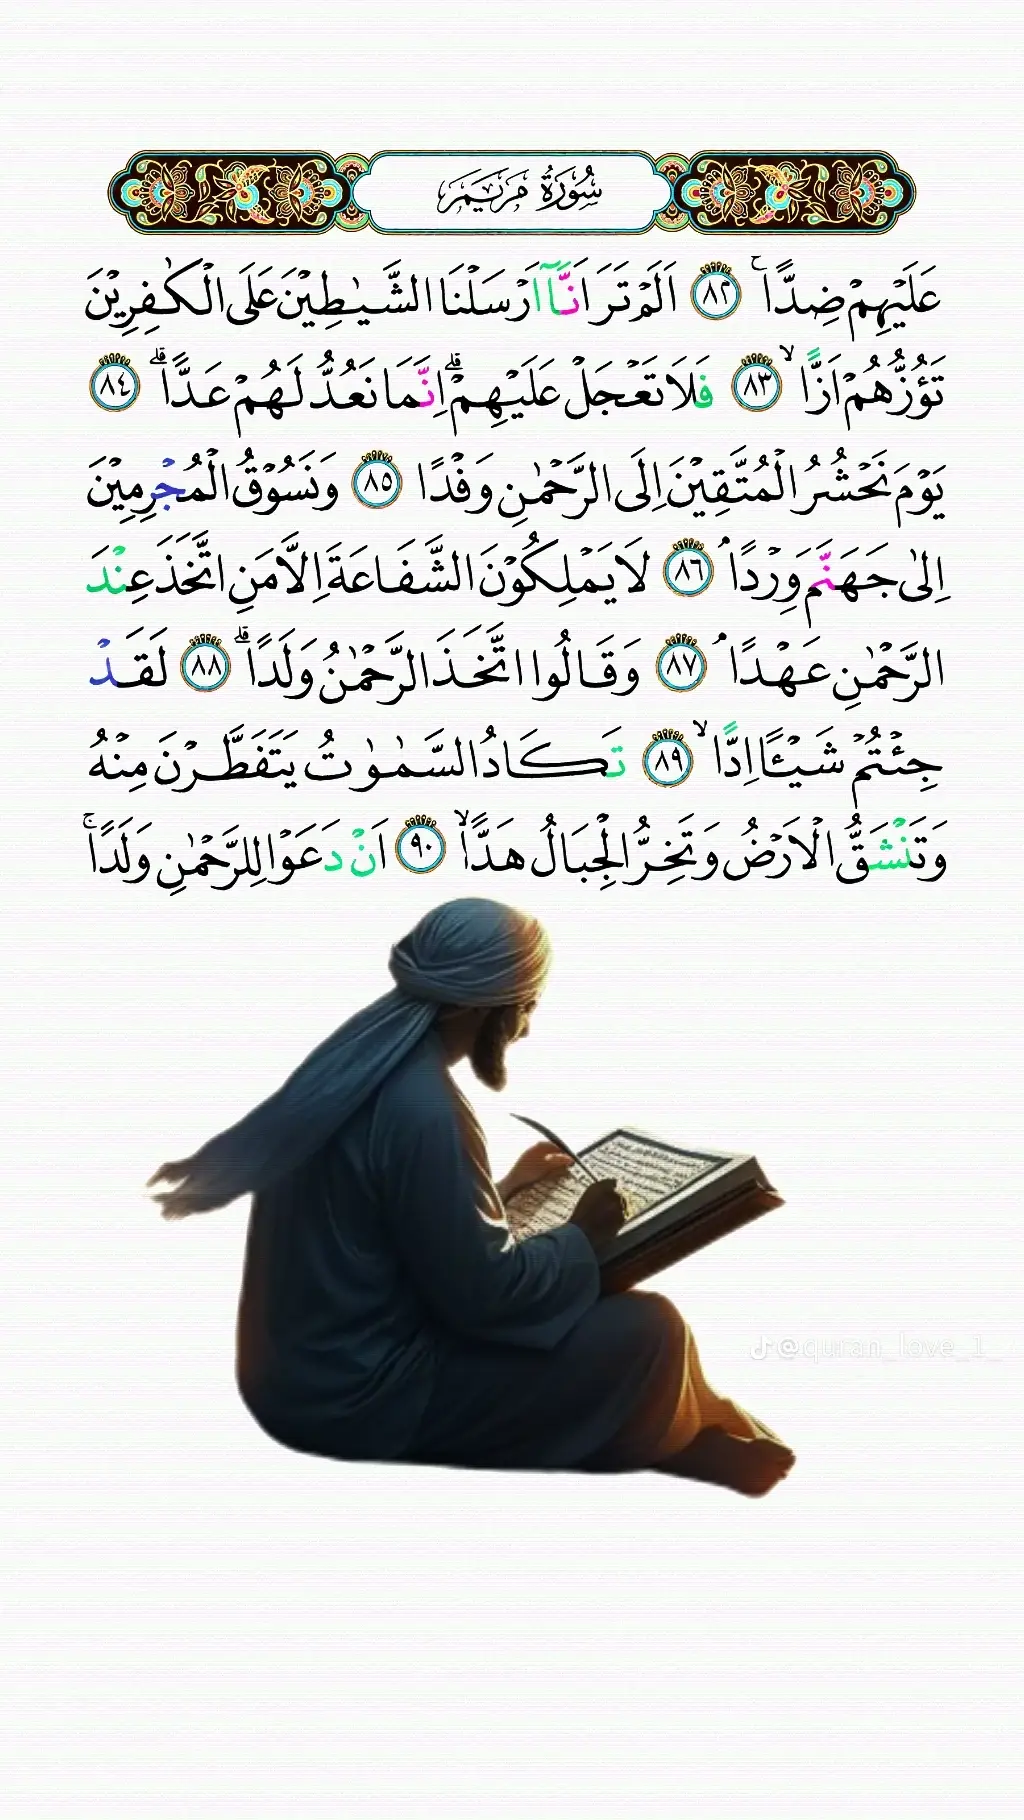 سُورَةُ مَرْيَمَ
عَلَيْهِمْ ضِدًّا ۚ ﴿٨٢﴾ اَلَمْ تَرَ اَنَّآ اَرْسَلْنَا الشَّيٰطِيْنَ عَلَى الْكٰفِرِيْنَ
تَؤُزُّهُمْ اَزًّا ۙ ﴿٨٣﴾ فَلَا تَعْجَلْ عَلَيْهِمْ ۗ اِنَّمَا نَعُدُّ لَهُمْ عَدًّا ۗ ﴿٨٤﴾
يَوْمَ نَحْشُرُ الْمُتَّقِيْنَ اِلَى الرَّحْمٰنِ وَفْدًا ﴿٨٥﴾ وَنَسُوْقُ الْمُجْرِمِيْنَ
اِلٰى جَهَنَّمَ وِرْدًا ۘ ﴿٨٦﴾ لَا يَمْلِكُوْنَ الشَّفَاعَةَ اِلَّا مَنِ اتَّخَذَ عِنْدَ
الرَّحْمٰنِ عَهْدًا ۘ ﴿٨٧﴾ وَقَالُوا اتَّخَذَ الرَّحْمٰنُ وَلَدًا ۗ ﴿٨٨﴾ لَقَدْ
جِئْتُمْ شَيْـًٔا اِدًّا ۙ ﴿٨٩﴾ تَكَادُ السَّمٰوٰتُ يَتَفَطَّرْنَ مِنْهُ
وَتَنْشَقُّ الْاَرْضُ وَتَخِرُّ الْجِبَالُ هَدًّا ۙ ﴿٩٠﴾ اَنْ دَعَوْا لِلرَّحْمٰنِ وَلَدًا ۚ
@quran_love_1_